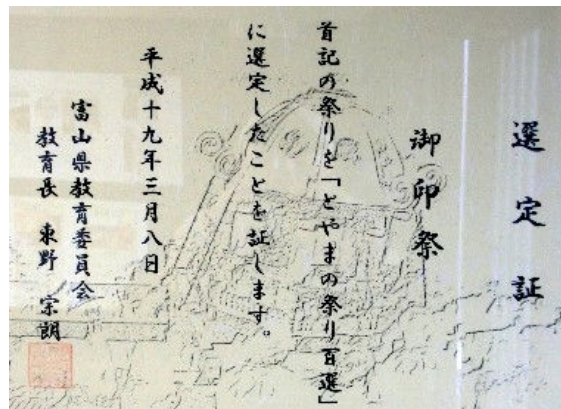 選定証
御印祭
首記の祭りを「とやまの祭り百選」
に選定したことを証します。
平成十九年三月八日
富山県教育委員会
教育長 東野 宗朗